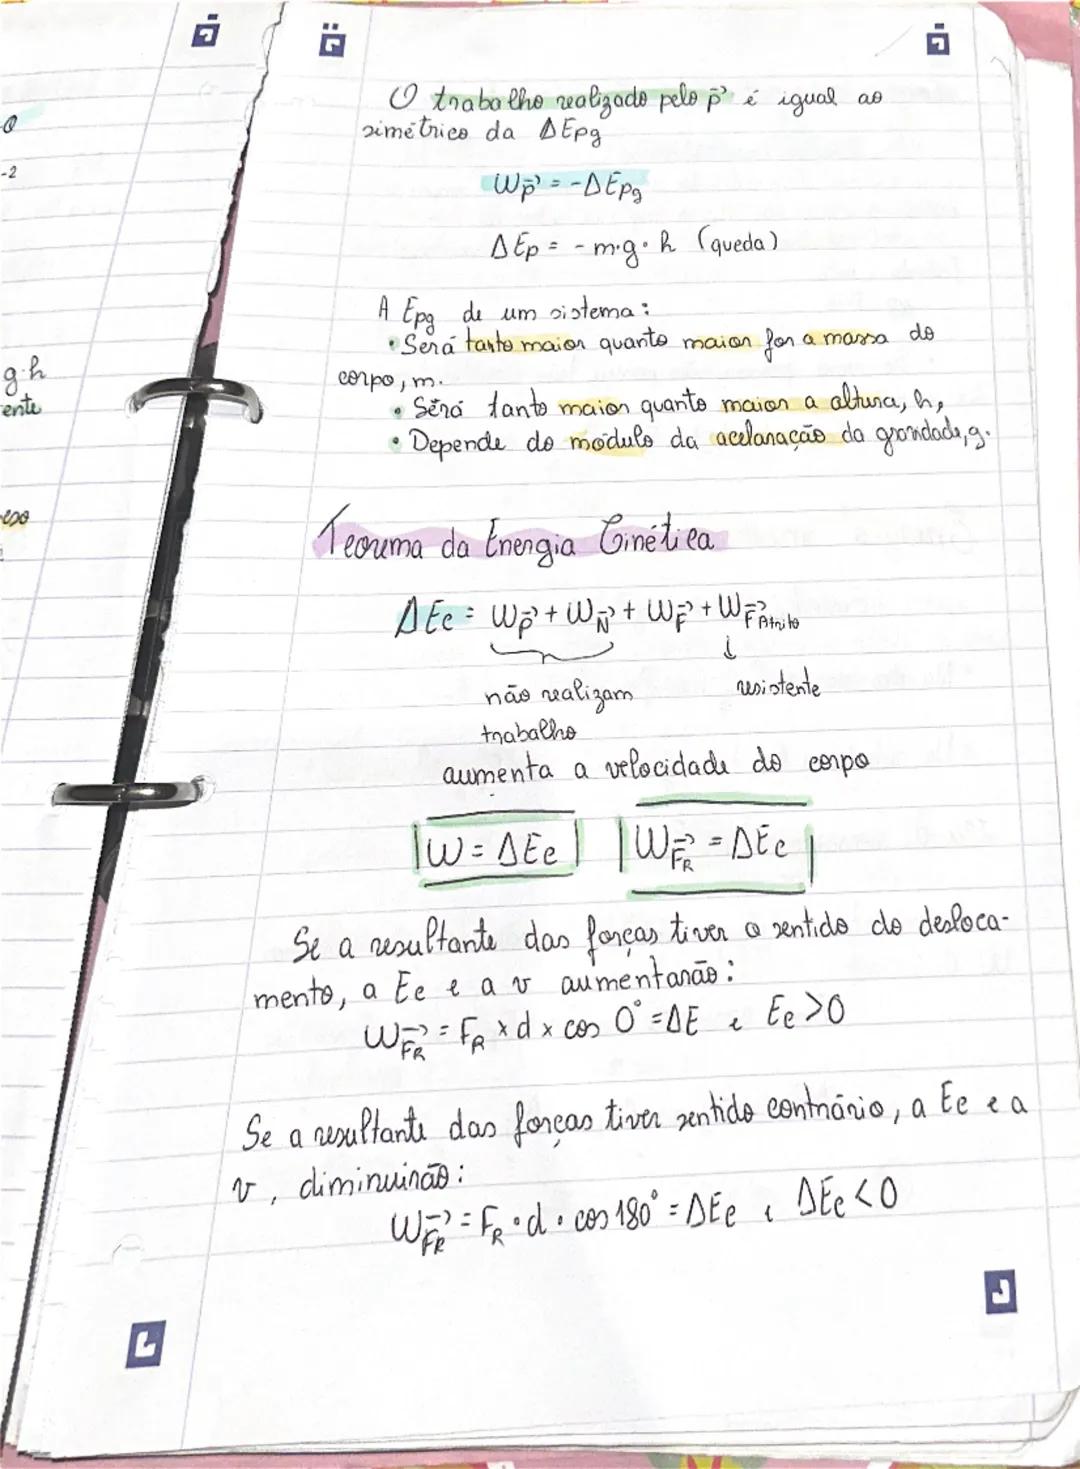 O trabalho realizado pelo p⃗ é igual ao
simétrico da ΔEpg
Wp⃗ = -ΔEpg
ΔEp = - m·g·h (queda)
A Epg de um sistema:
• Será tanto maior quanto maior for a massa do
corpo, m.
• Será tanto maior quanto maior a altura, h,
• Depende do módulo da acelaração da gravidade, g.
Teorema da Energia Cinética
ΔEc = Wp⃗ + WN⃗ + WF⃗ + WF⃗Atrito
↓
não realizam resistente
trabalho
aumenta a velocidade do corpo
W = ΔEc WF⃗R = ΔEc
Se a resultante das forças tiver o sentido do desloca-
mento, a Ec e a v aumentarão:
WF⃗R = FR x d x cos 0° = ΔE e Ec > 0
Se a resultante das forças tiver sentido contrário, a Ec e a
v, diminuirão:
WF⃗R = FR · d · cos 180° = ΔEc e ΔEc < 0
-2
g·h
ente
eso